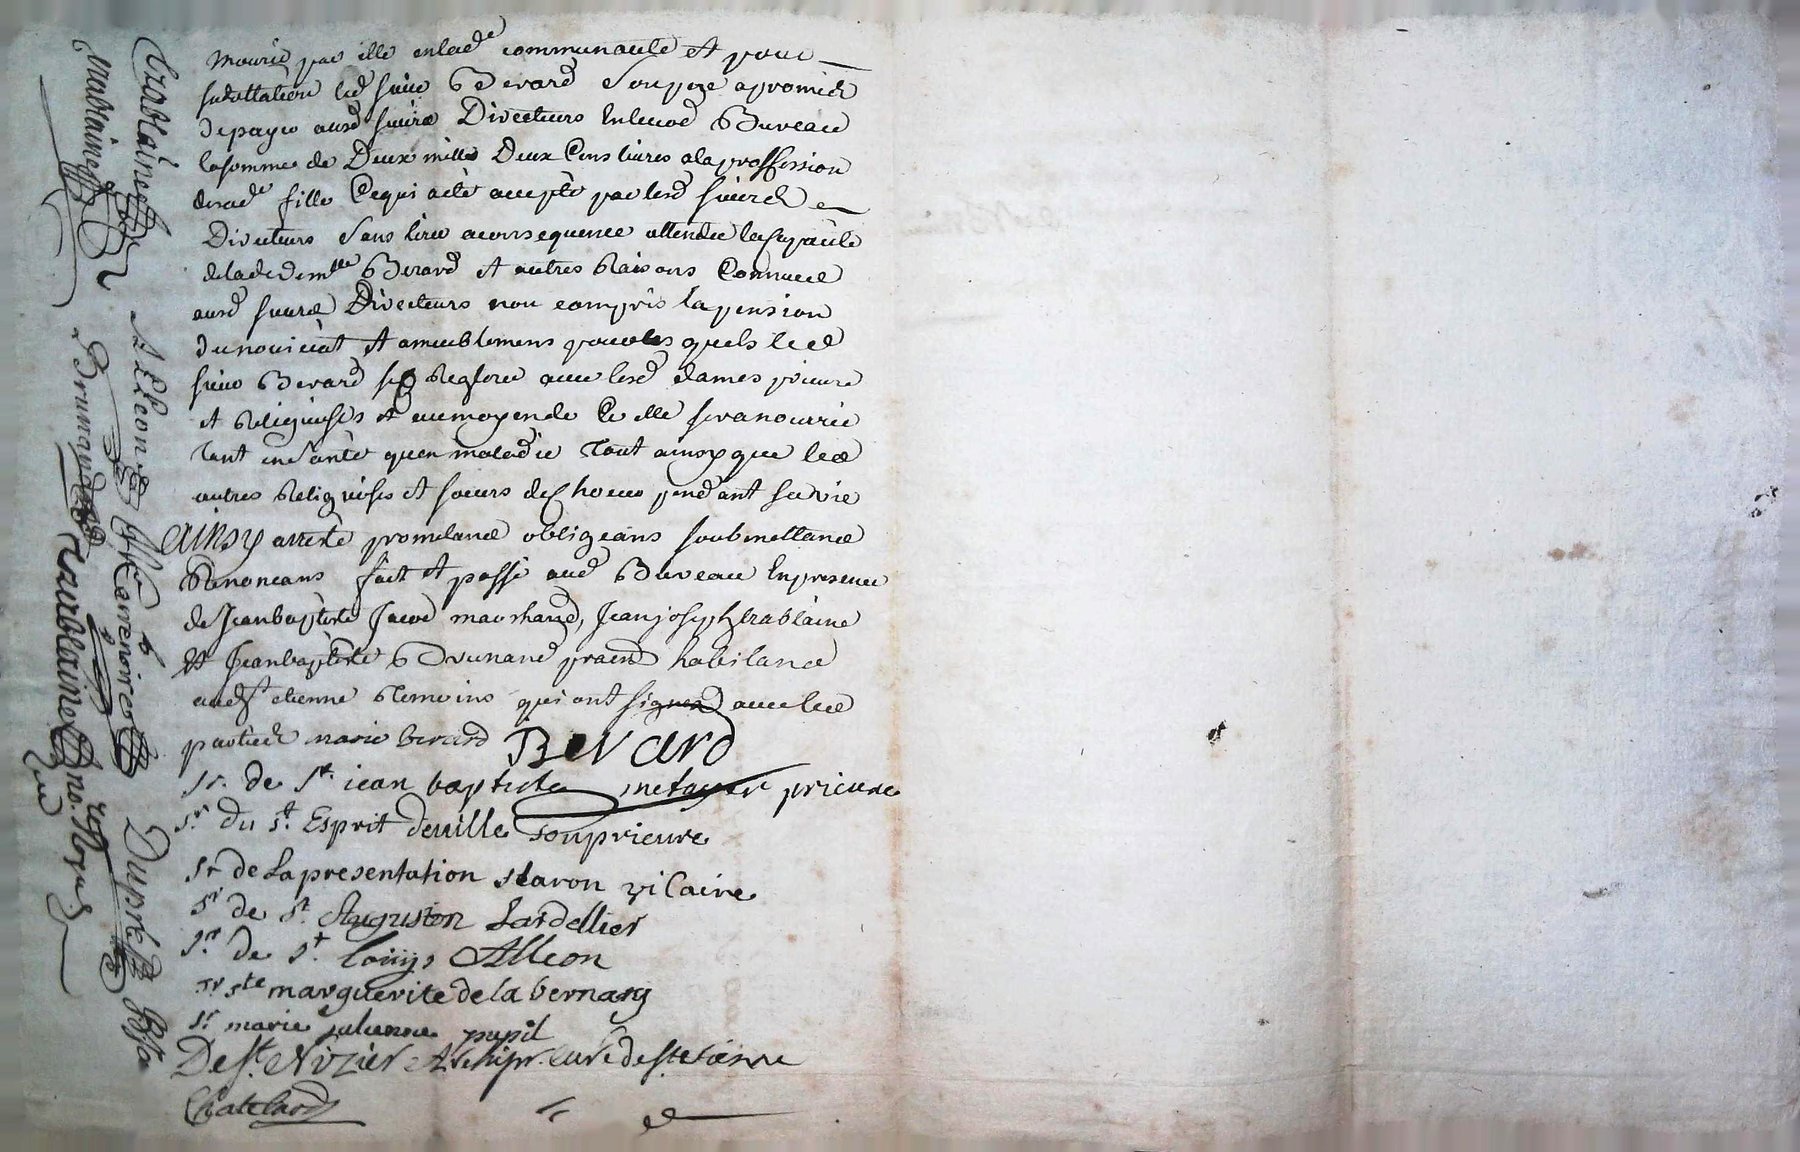 mourir par elle en lad.e communauté et pour
led sieur Berard a promis
de payer ausd sieurs Directeurs Bureau
la somme de Deux mille Deux Cens livres a la proffession
de sad.e fille Ce qui a été accepté par lesd sieurs
Directeurs Sans tirer a consequence attendu
de lade demlle Berard et autres Raisons Connues
ausd sieurs Directeurs non compris la pension
du noviciat et ameublemens pour lesquels led
sieur Berard Reglera avec lesd dames prieure
et Religieuses et au moyen de Ce elle sera nourrie
Tant en santé qu'en maladie Tout ainsy que les
autres Religieuses et soeurs de choeur pendant sa vie
ainsy arresté promettans obligeans soubmettans
Renonceans fait et passé aud Bureau En presence
de Jean baptiste marchand, Jean joseph trablaine
et Jean baptiste Brunand habitans
aud st etienne temoins qui ont signé avec les
parties marie berard Berard
Sr. de St. jean baptiste metayer prieure
Sr du st. Esprit deville souprieure
Sr de La presentation staron vicaire
Sr de St Augustin Lardellier
Sr. de St. louys Alleon
Sr ste marguerite de la bernary
Sr marie julienne pupil
De St. Nizier Archipr. curé de St etienne
Chatelard
trablaine
trablaine
Alleon
Brunand
Carrenoire
trablaine
Dupré
no. Royal